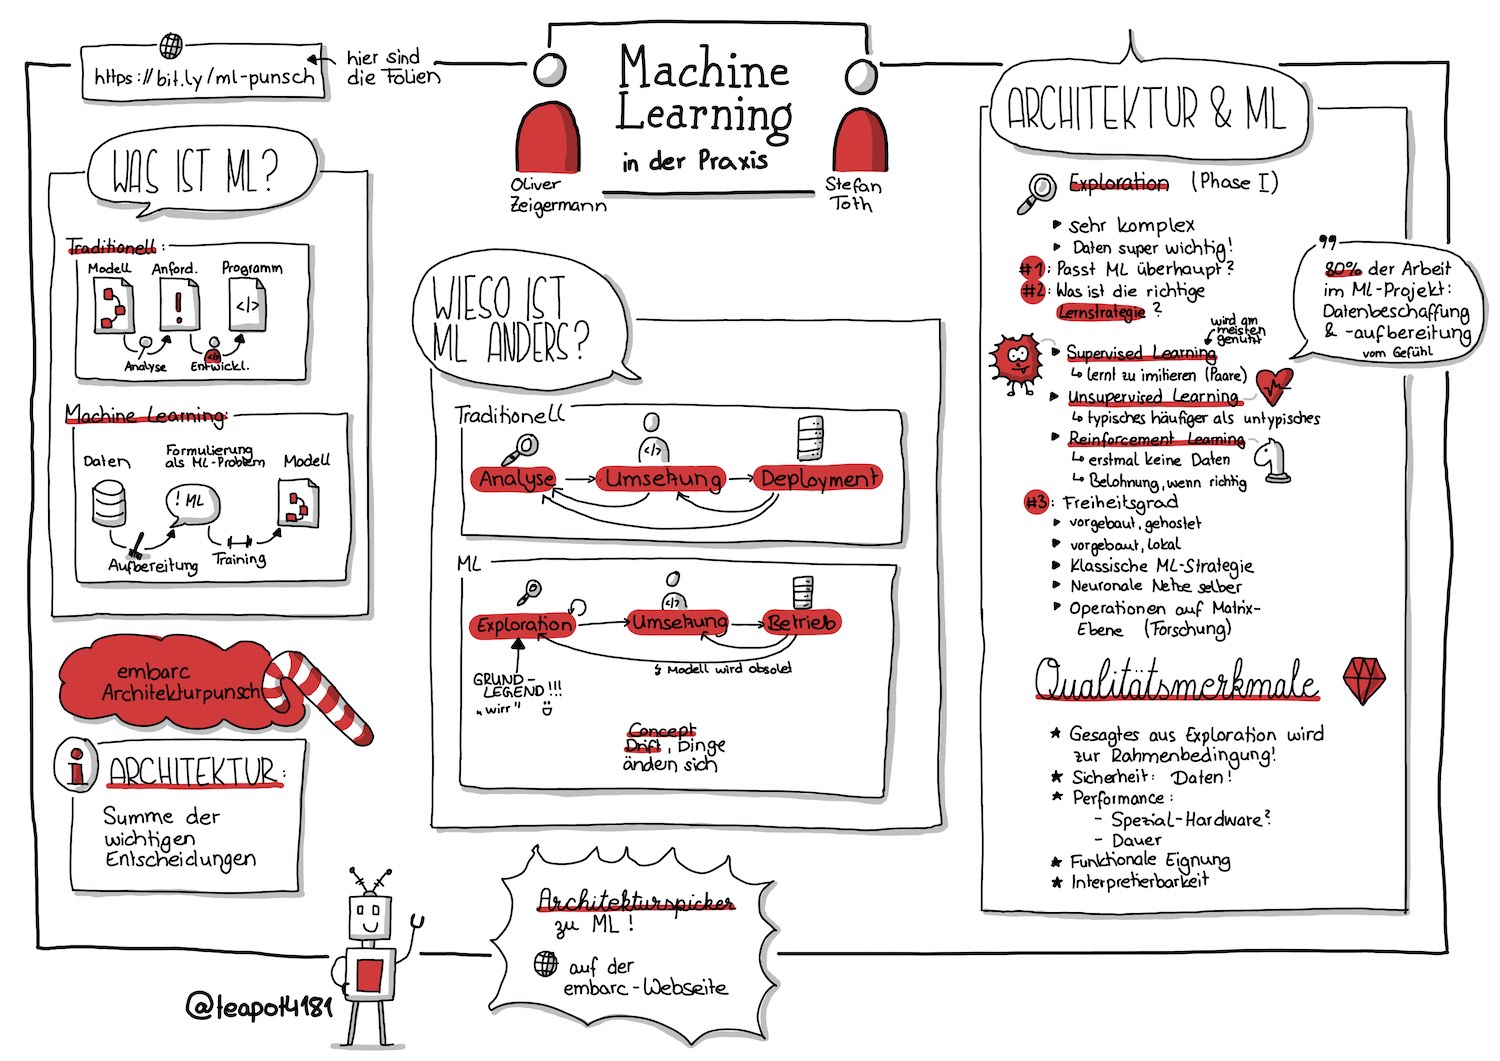 https://bit.ly/ml-punsch
hier sind
die Folien
Machine
Learning
in der Praxis
Oliver
Zeigermann
Stefan
Toth
WAS IST ML?
Traditionell:
Modell
Anford.
Programm
!
</>
Analyse
</>
Entwickl.
Machine Learning:
Daten
Formulierung
als ML-Problem
Modell
! ML
Aufbereitung
Training
embarc
Architekturpunsch
i
ARCHITEKTUR:
Summe der
wichtigen
Entscheidungen
@teapot4181
WIESO IST
ML ANDERS?
Traditionell
</>
Analyse
Umsetzung
Deployment
ML
</>
Exploration
Umsetzung
Betrieb
Modell wird obsolet
GRUND-
LEGEND!!!
"wirr"
Concept
Drift, Dinge
ändern sich
Architekturspicker
zu ML!
auf der
embarc-Webseite
ARCHITEKTUR & ML
Exploration (Phase I)
sehr komplex
Daten super wichtig!
#1: Passt ML überhaupt?
#2: Was ist die richtige
Lernstrategie?
wird am
meisten
genutzt
Supervised Learning
↳ lernt zu imitieren (Paare)
Unsupervised Learning
↳ typisches häufiger als untypisches
Reinforcement Learning
↳ erstmal keine Daten
↳ Belohnung, wenn richtig
#3: Freiheitsgrad
vorgebaut, gehostet
vorgebaut, lokal
Klassische ML-Strategie
Neuronale Netze selber
Operationen auf Matrix-
Ebene (Forschung)
"
80% der Arbeit
im ML-Projekt:
Datenbeschaffung
& -aufbereitung
vom Gefühl
Qualitätsmerkmale
★ Gesagtes aus Exploration wird
zur Rahmenbedingung!
★ Sicherheit: Daten!
★ Performance:
- Spezial-Hardware?
- Dauer
★ Funktionale Eignung
★ Interpretierbarkeit